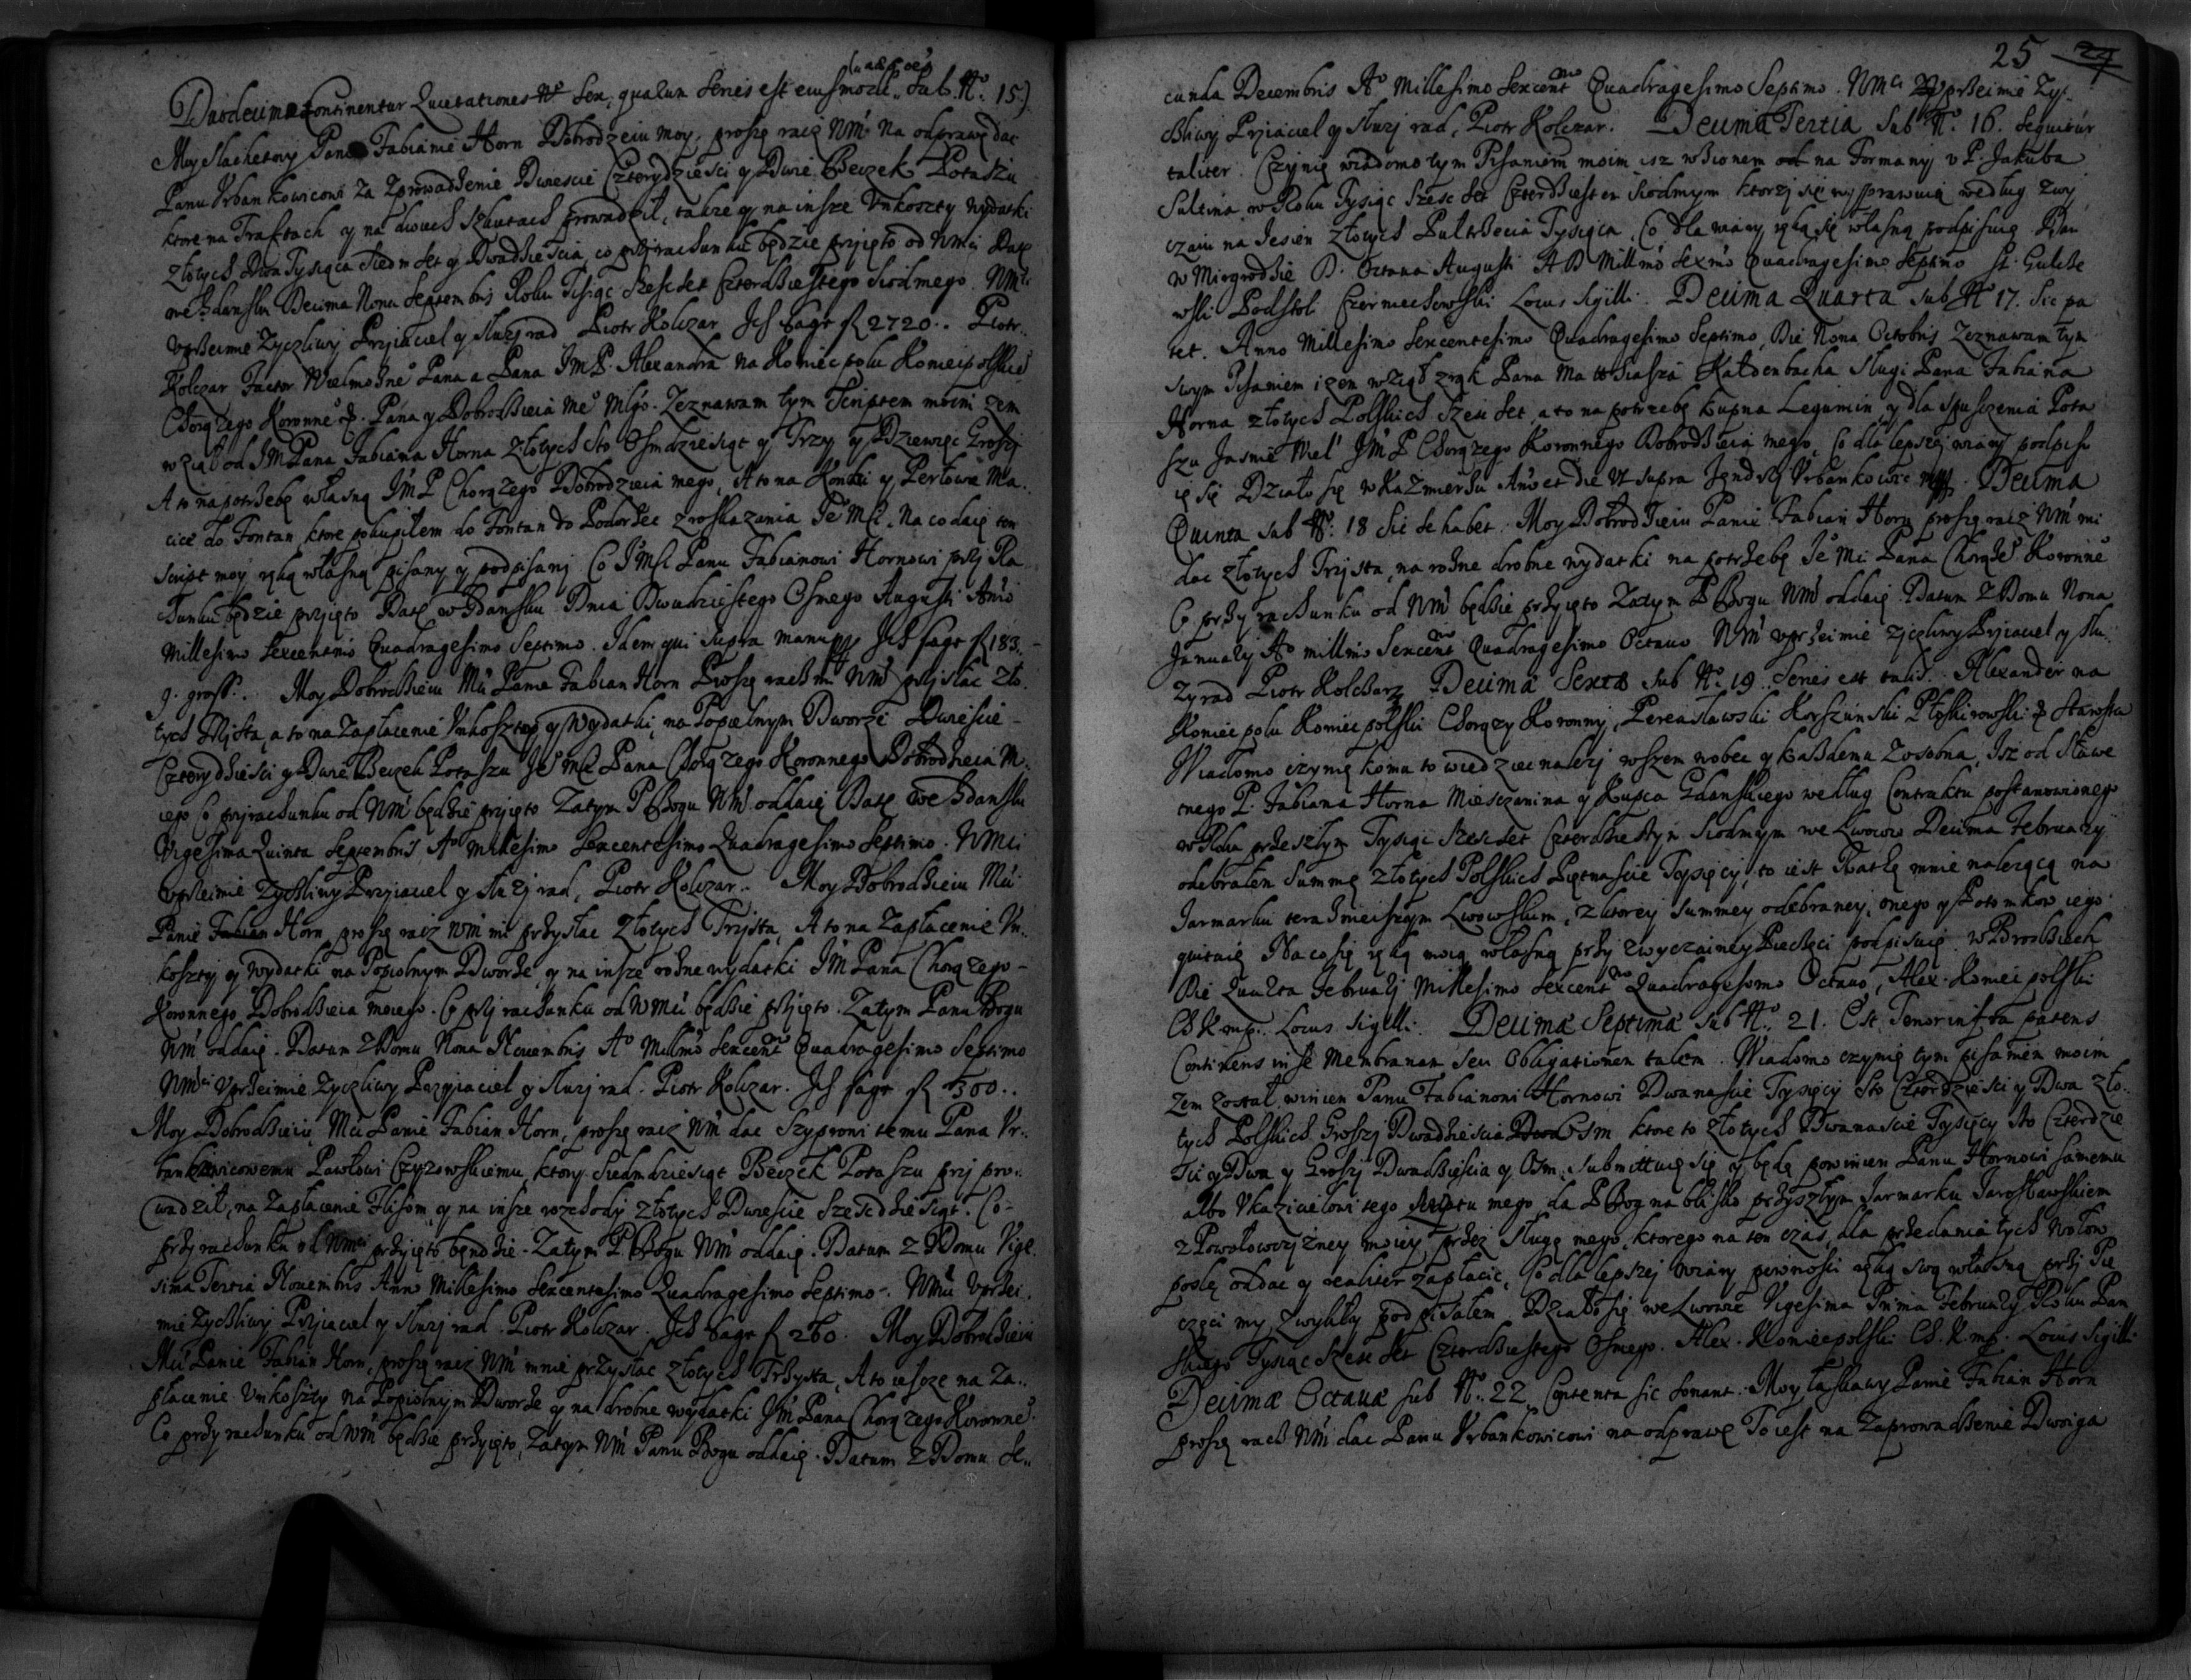 Duodecima continentur Quietationes No sex, qualum series est eiusmodi. Sub. No. 15.)
Moy Slachetny Panie Fabianie Horn Dobrodzieiu moy, proszę racz WM na odprawę dac
Panu Urbankowicowi za zprowadzenie Dwiescie Czterydziesci y Dwie Beczek Potaszu
ktore na Traftach y na dwuch Szkutach prowadził, takze y na insze Unkoszty wydatki
złotych Dwa Tysiąca siedm set y Dwadziescia, co przyrachunku będzie przyięto od WMci Dat
we Gdansku Decima Nona Septembris Roku Tysiąc szescset Czterdziestego siodmego. WMci
uprzeimie Zyczliwy Przyiaciel y sluzyc rad Piotr Kolczar Ich sage fl 2720.. Piotr
Kolczar Factor Wielmoznego Pana a Pana IMP. Alexandra na Koniecpolu Koniecpolskiego
Chorązego Koronnego &. Pana y Dobrodzieia mego Młgo. Zeznawam tym Scriptem moim zem
wziął od IMPana Fabiana Horna złotych Sto Osmdziesiąt y Trzy y Dziewięc Groszy
A to na potrzebę własną IMP Chorązego Dobrodzieia mego, A to na Konchi y Perłowa Ma..
cice do Fontan ktore pokupiłem do Fontan do Podorzec z roskazania Je Msci. Na co daię ten
script moy ręką własną pisany y podpisany Co I Msci Panu Fabianowi Hornowi przy Ra
chunku będzie przyięto Dat w Gdansku Dnia Dwudziestego Osmego Augusti Anno
Millesimo sexcentmo Quadragesimo Septimo. Idem qui supra manu pp Ich sage fl 183.
9. gross. Moy Dobrodzieiu Mci Panie Fabian Horn Proszę racz mi WM przysłac zło
tych Trzysta, a to na Zapłacenie Unkosztow y Wydatki, na Popielnym Dworze Dwiescie
Czterydziesci y Dwie Beczek Potaszu Je Msci Pana Chorązego Koronnego Dobrodzieia M.
iego Co przyrachunku od WM będzie przyięto Zatym P Bogu WM oddaię Dat we Gdansku
Vigesima Quinta Septembris Ao Millesimo Sexcentesimo Quadragesimo Septimo. WMci
uprzeimie Zyczliwy Przyiaciel y sluzyc rad, Piotr Kolczar.. Moy Dobrodzieiu Mci
Panie Fabian Horn, proszę racz WM mi przysłac złotych Trzysta, A to na Zapłacenie Un..
koszty y wydatki na Popiolnym Dworze, y na insze rozne wydatki IM Pana Chorązego
Koronnego Dobrodzieia moiego. Co przy rachunku od WMci będzie przyięto. Zatym Pana Bogu
WM oddaię. Datum z Domu Nona Nouembris Ao Millmo Sexcentmo Quadragesimo Septimo
WMci Uprzeimie Zyczliwy Przyiaciel y sluzyc rad. Piotr Kolczar. Ich sage fl 300..
Moy Dobrodzieiu Mci Panie Fabian Horn, proszę racz WM dac Szyprowi temu Pana Ur..
bankowicowemu Pawłowi Czyzowskiemu, ktory siedmdziesiąt Beczek Potaszu przy pro..
wadził, na Zapłacenie Flisom, y na insze rozchody złotych Dwiescie Szescdziesiąt. Co
przy rachunku od WMci przyięto będzie. Zatym P Bogu WM oddaię. Datum z Domu Vige
sima Tertia Nouembris Anno Millesimo Sexcentesimo Quadragesimo Septimo. WMci Uprzei.
mie Zyczliwy Przyiaciel y sluzyc rad. Piotr Kolczar. Ich sage fl 260. Moy Dobrodzieiu
Mci Panie Fabian Horn, proszę racz WM mnie przysłac złotych Trzysta, A to ieszcze na Za..
płacenie Unkoszty na Popiolnym Dworze y na drobne wydatki IM Pana Chorązego Koronnego.
Co przy rachunku od WM będzie przyięto, Zatym WM Panu Bogu oddaię. Datum z Domu Se..
25 24
cunda Decembris Ao Millesimo Sexcentmo Quadragesimo Septimo. WMci Uprzeimie Zy.
czliwy Przyiaciel y sluzyc rad, Piotr Kolczar. Decima Tertia Sub No. 16. Sequitur
taliter. Czynię wiadomo tym Pisaniem moim isz wzionem od na Formany u P. Jakuba
Sultina w Roku Tysiąc Szesc set Czterdziestem Siodmym ktorzy się wyprawuią według zwy
czaiu na Jesien złotych Pultrzecia Tysiąca, Co dla wiary ręką się własną podpisuię Dan
w Mirgrodzie D. Octaua Augusti A D Millmo Sexmo Quadragesimo Septimo St. Gulcze
wski Podstol. Czerniechowski Locus Sigilli. Decima Quarta Sub No 17. Sic pa
tet. Anno Millesimo Sexcentesimo Quadragesimo Septimo, Die Nona Octobris Zeznawam tym
swym Pisaniem izem wziął z rąk Pana Matthiasza Kaldenbacha Slugi Pana Fabiana
Horna złotych Polskich Szesc set, a to na potrzebę kupna Legumin, y dla spusczenia Pota
szu Jasnie Wiel IM P Chorązego Koronnego Dobrodzieia mego, Co dla lepszey wiary podpisu
ię się Działo się w Kazmierzu Anno et die Ut supra Jendrzy Urbankowic mpp. Decima
Quinta sub No: 18 Sic se habet. Moy Dobrodzieiu Panie Fabian Horn proszę racz WM mi
dac złotych Trzysta, na rozne drobne wydatki na potrzebę Je Mci Pana Chorązego Koronnego
Co przy rachunku od WM będzie przyięto Zatym P Bogu WM oddaię. Datum z Domu Nona
January Ao millmo Sexcentmo Quadragesimo Octauo WM uprzeimie zyczliwy Przyiaciel y slu.
zyc rad Piotr Kolczar. Decima Sexta sub No. 19 Series est talis. Alexander na
Koniecpolu Koniecpolski Chorązy Koronny, Pereasławski Korszunski Płoskirowski & Starosta
Wiadomo czynię komu to wiedziec nalezy wszem wobec y kazdemu Zosobna, Isz od Sławe
tnego P. Fabiana Horna Miesczanina y Kupca Gdanskiego według Contraktu postanowionego
w Roku przeszłym Tysiąc Szescset Czterdziestym Siodmym we Lwowie Decima February
odebrałem Summę złotych Polskich Piętnascie Tysięcy, to iest Ratę mnie nalezącą na
Jarmarku teraznieiszym Lwowskim, z ktorey summey odebraney, onego y Potomkow iego
quituię Na co się ręką moią własną przy zwyczainey Pieczęci podpisuię. w Brodziech
Die Quarta February Millesimo Sexcentmo Quadragesimo Octauo, Alex. Koniecpolski
Ch K mp. Locus Sigilli. Decima Septima sub No. 21. Est Tenor infra patens
Continens in se Membranam seu Obligationem talem. Wiadomo czynię tym pisaniem moim
zem został winien Panu Fabianowi Hornowi Dwanascie Tysięcy Sto Czterdziesci y Dwa zło..
tych Polskich Groszy Dwadziescia Osm ktore to złotych Dwanascie Tysięcy Sto Czterdzie
sci y Dwa y Groszy Dwadziescia y Osm: submittuię się y będę powinien Panu Hornowi samemu
albo Ukazicielowi tego skriptu mego, da P Bog na blisko przyszłym Jarmarku Jarosławskiem
z Powołowczyzney moiey przez slugę mego, ktorego na ten czas, dla przedania tych wołow
poslę oddac y realiter zapłacic, Co dla lepszey wiary pewnosci ręką swą własną przy Pie
częci my zwykły podpisałem. Działo się we Lwowie Vigesima Prima February Roku Pan
skiego Tysiąc Szesc set Czterdziestego Osmego. Alex. Koniecpolski Ch. K mp. Locus Sigilli
Decima Octaua sub No. 22 Contenta sic sonant. Moy łaskawy Panie Fabian Horn
proszę racz WM dac Panu Urbankowicowi na odprawę To iest na Zaprowadzenie Dwoiga